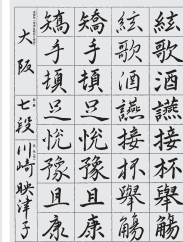 絃歌酒讌接杯舉觴
絃歌酒讌接杯舉觴
矯手頓足悅豫且康
矯手頓足悅豫且康
大阪 七段 川崎映津子